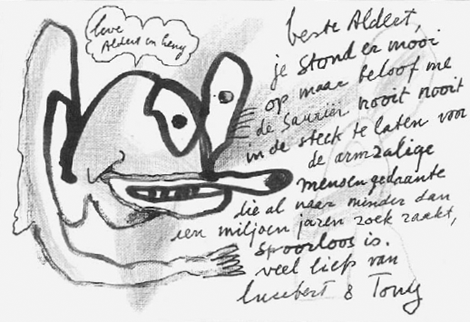 leve
Aldert en Leny
beste Aldert,
je stond er mooi
op maar beloof me
de Sauriër nooit nooit
in de steek te laten voor
de armzalige
mensengedaante
die al naar minder dan
een miljoen jaren zoek raakt,
spoorloos is.
veel liefs van
Lucebert & Tony